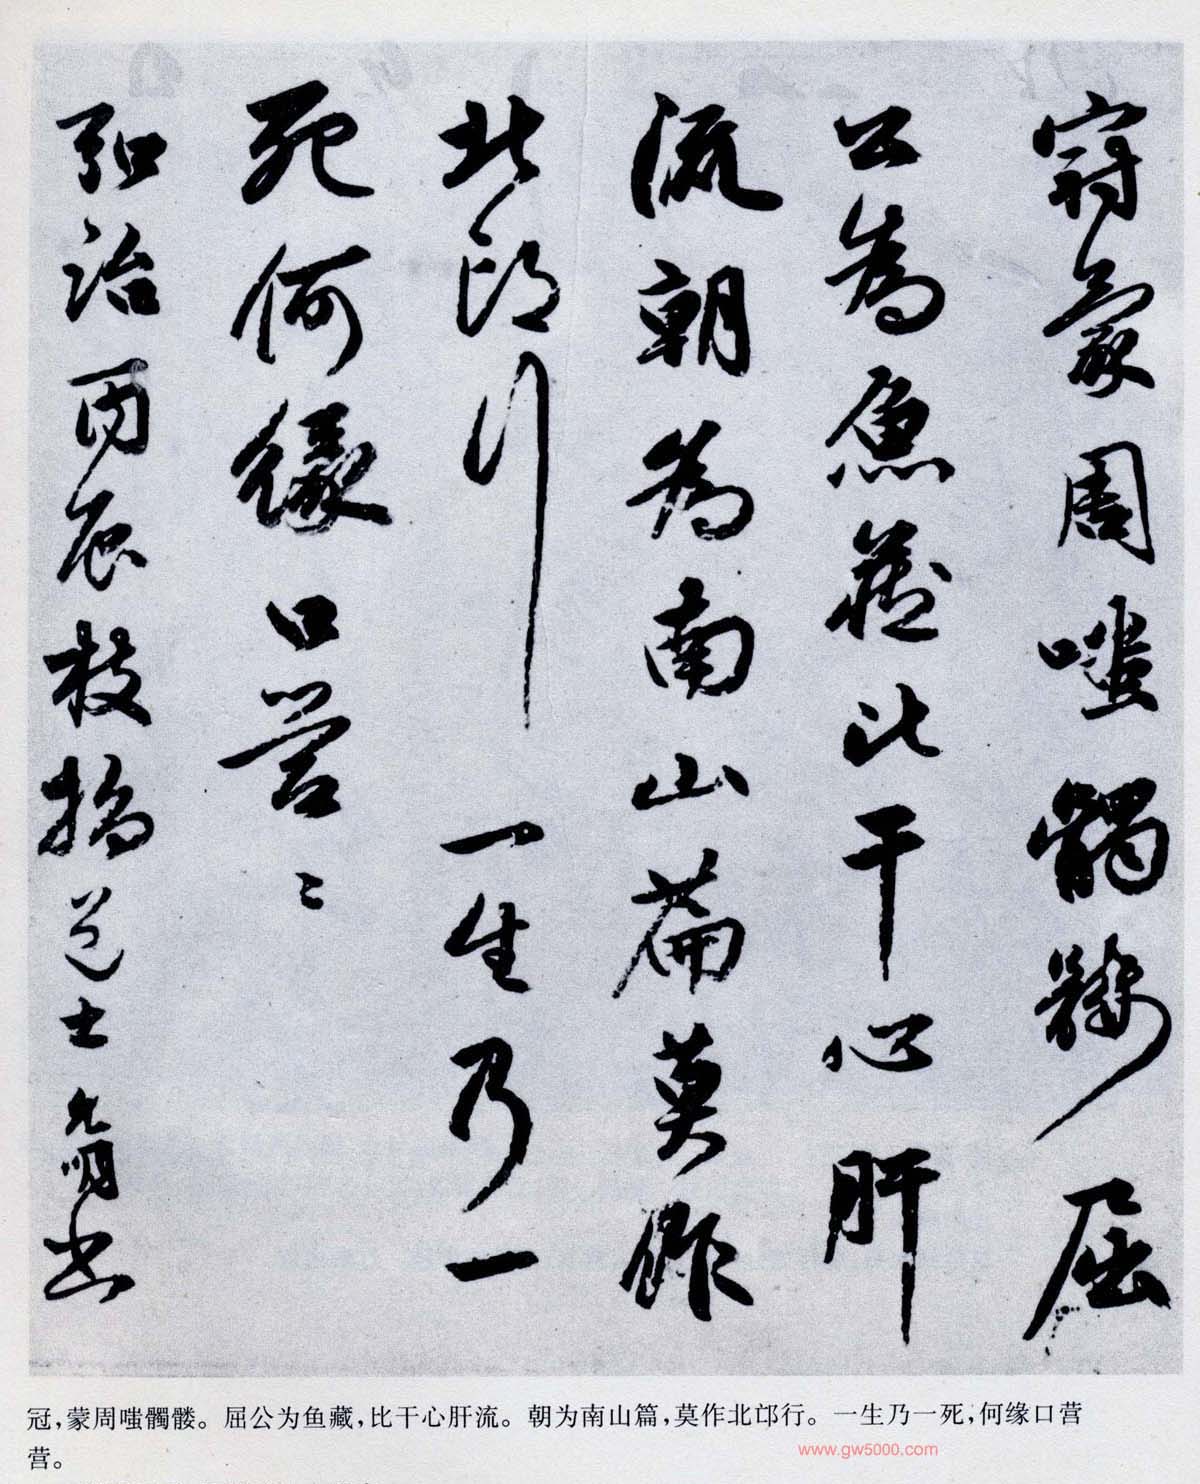 冠蒙周嗤髑髅屈
公为鱼藏比干心肝
流朝为南山篇莫作
北邙行一生乃一
死何缘口营〻
弘治丙辰枝指道士允明书
冠，蒙周嗤髑髅。屈公为鱼藏，比干心肝流。朝为南山篇，莫作北邙行。一生乃一死，何缘口营
营。
www.gw5000.com